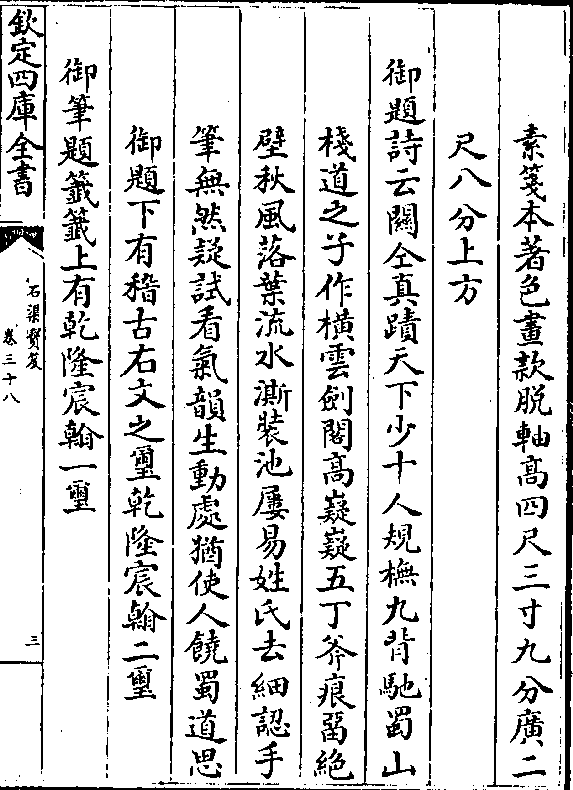 素箋本著色畫款脱軸高四尺三寸九分廣二
尺八分上方
御題詩云關仝真蹟天下少十人規橅九背馳蜀山
棧道之子作横雲劍閣高嶷嶷五丁斧痕留絶
壁秋風落葉流水澌裝池屢易姓氏去細認手
筆無然疑試看氣韻生動處猶使人饒蜀道思
御題下有稽古右文之璽乾隆宸翰二璽
御筆題籤籤上有乾隆宸翰一璽
欽定四庫全書
石渠寳笈
卷三十八
三